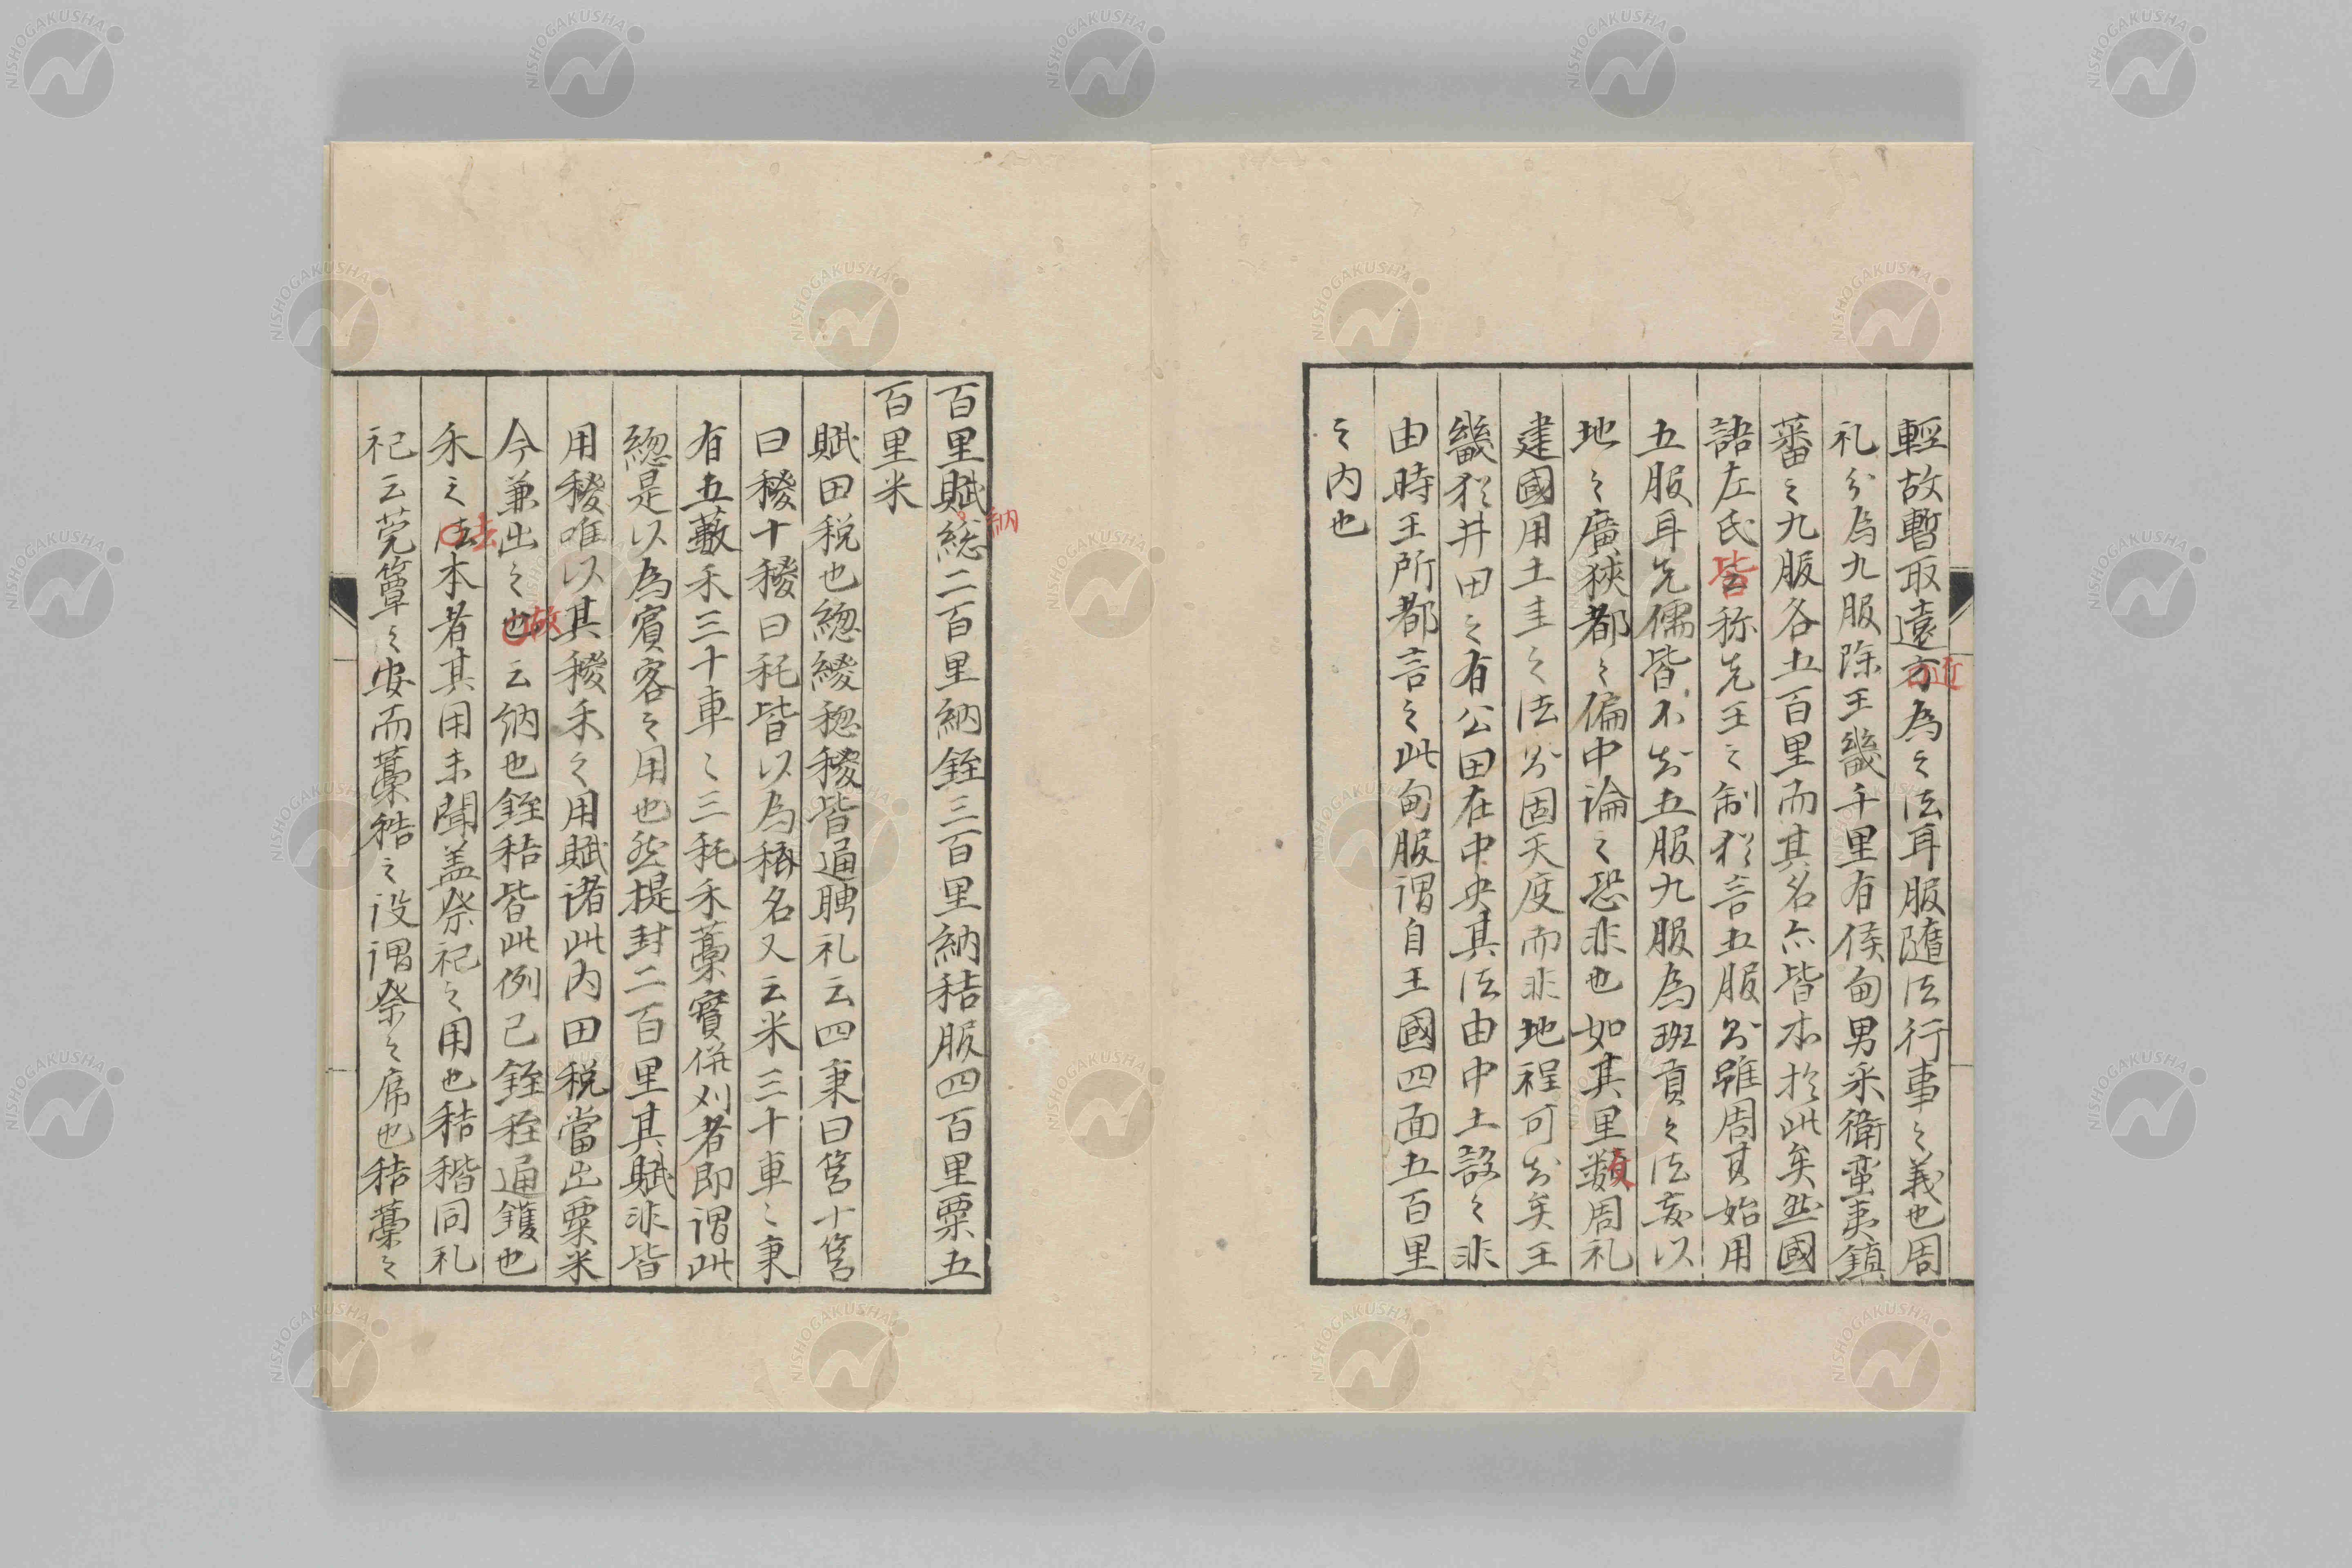 輕故暫取遠方為之法耳服隨法行事之義也周
近
礼分為九服除王畿千里有侯甸男采衛蛮夷鎮
蕃之九服各五百里而其名亦皆本於此矣然國
語左氏皆称先王之制犹言五服則雖周其始用
五服耳先儒皆不知五服九服為班貢之法或以
地之廣狹都之偏中論之恐非也如其里數周礼
建國用土圭之法則固天度而非地程可知矣王
畿犹井田之有公田在中央其法由中土設之非
由時王所都言之此甸服謂自王國四面五百里
之内也
百里賦総二百里納銍三百里納秸服四百里粟五
納
百里米
賦田税也緫緵稯稯皆通聘礼云四秉曰筥十筥
曰稯十稯曰秅皆以為稱名又云米三十車〻秉
有五籔禾三十車〻三秅禾藁實併刈者即謂此
緫是以為賓客之用也然提封二百里其賦非皆
用稯唯以其稯禾之用賦诸此内田税當出粟米
今兼出之也云納也銍秸皆此例已銍秷通鑊也
故
禾之法本者其用未聞盖祭祀之用也秸稭同礼
去
祀云莞簟之安而藁秸之设謂祭之席也秸藁之
NISHOGAKUSHA